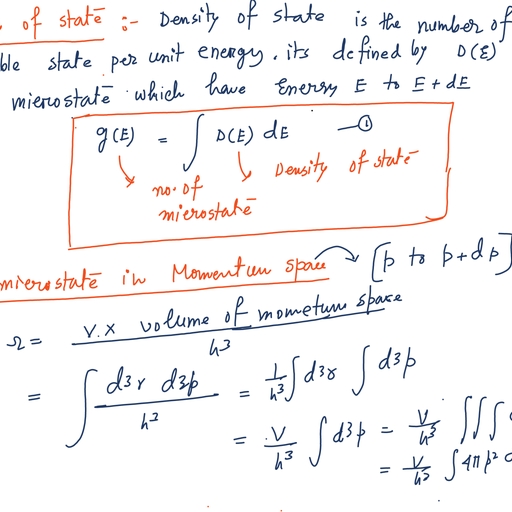 of state :- Density of state is the number of
ble state per unit energy. its defined by D(E)
microstate which have Energy E to E + dE
g(E) = ∫ D(E) dE —①
no. of microstate
Density of state
microstate in Momentum space → [p to p+dp]
Ω = V. x volume of mometum space / h³
= ∫ d3r d3p / h³ = 1/h³ ∫ d3r ∫ d3p
= V/h³ ∫ d3p = V/h³ ∫∫∫
= V/h³ ∫ 4π p²